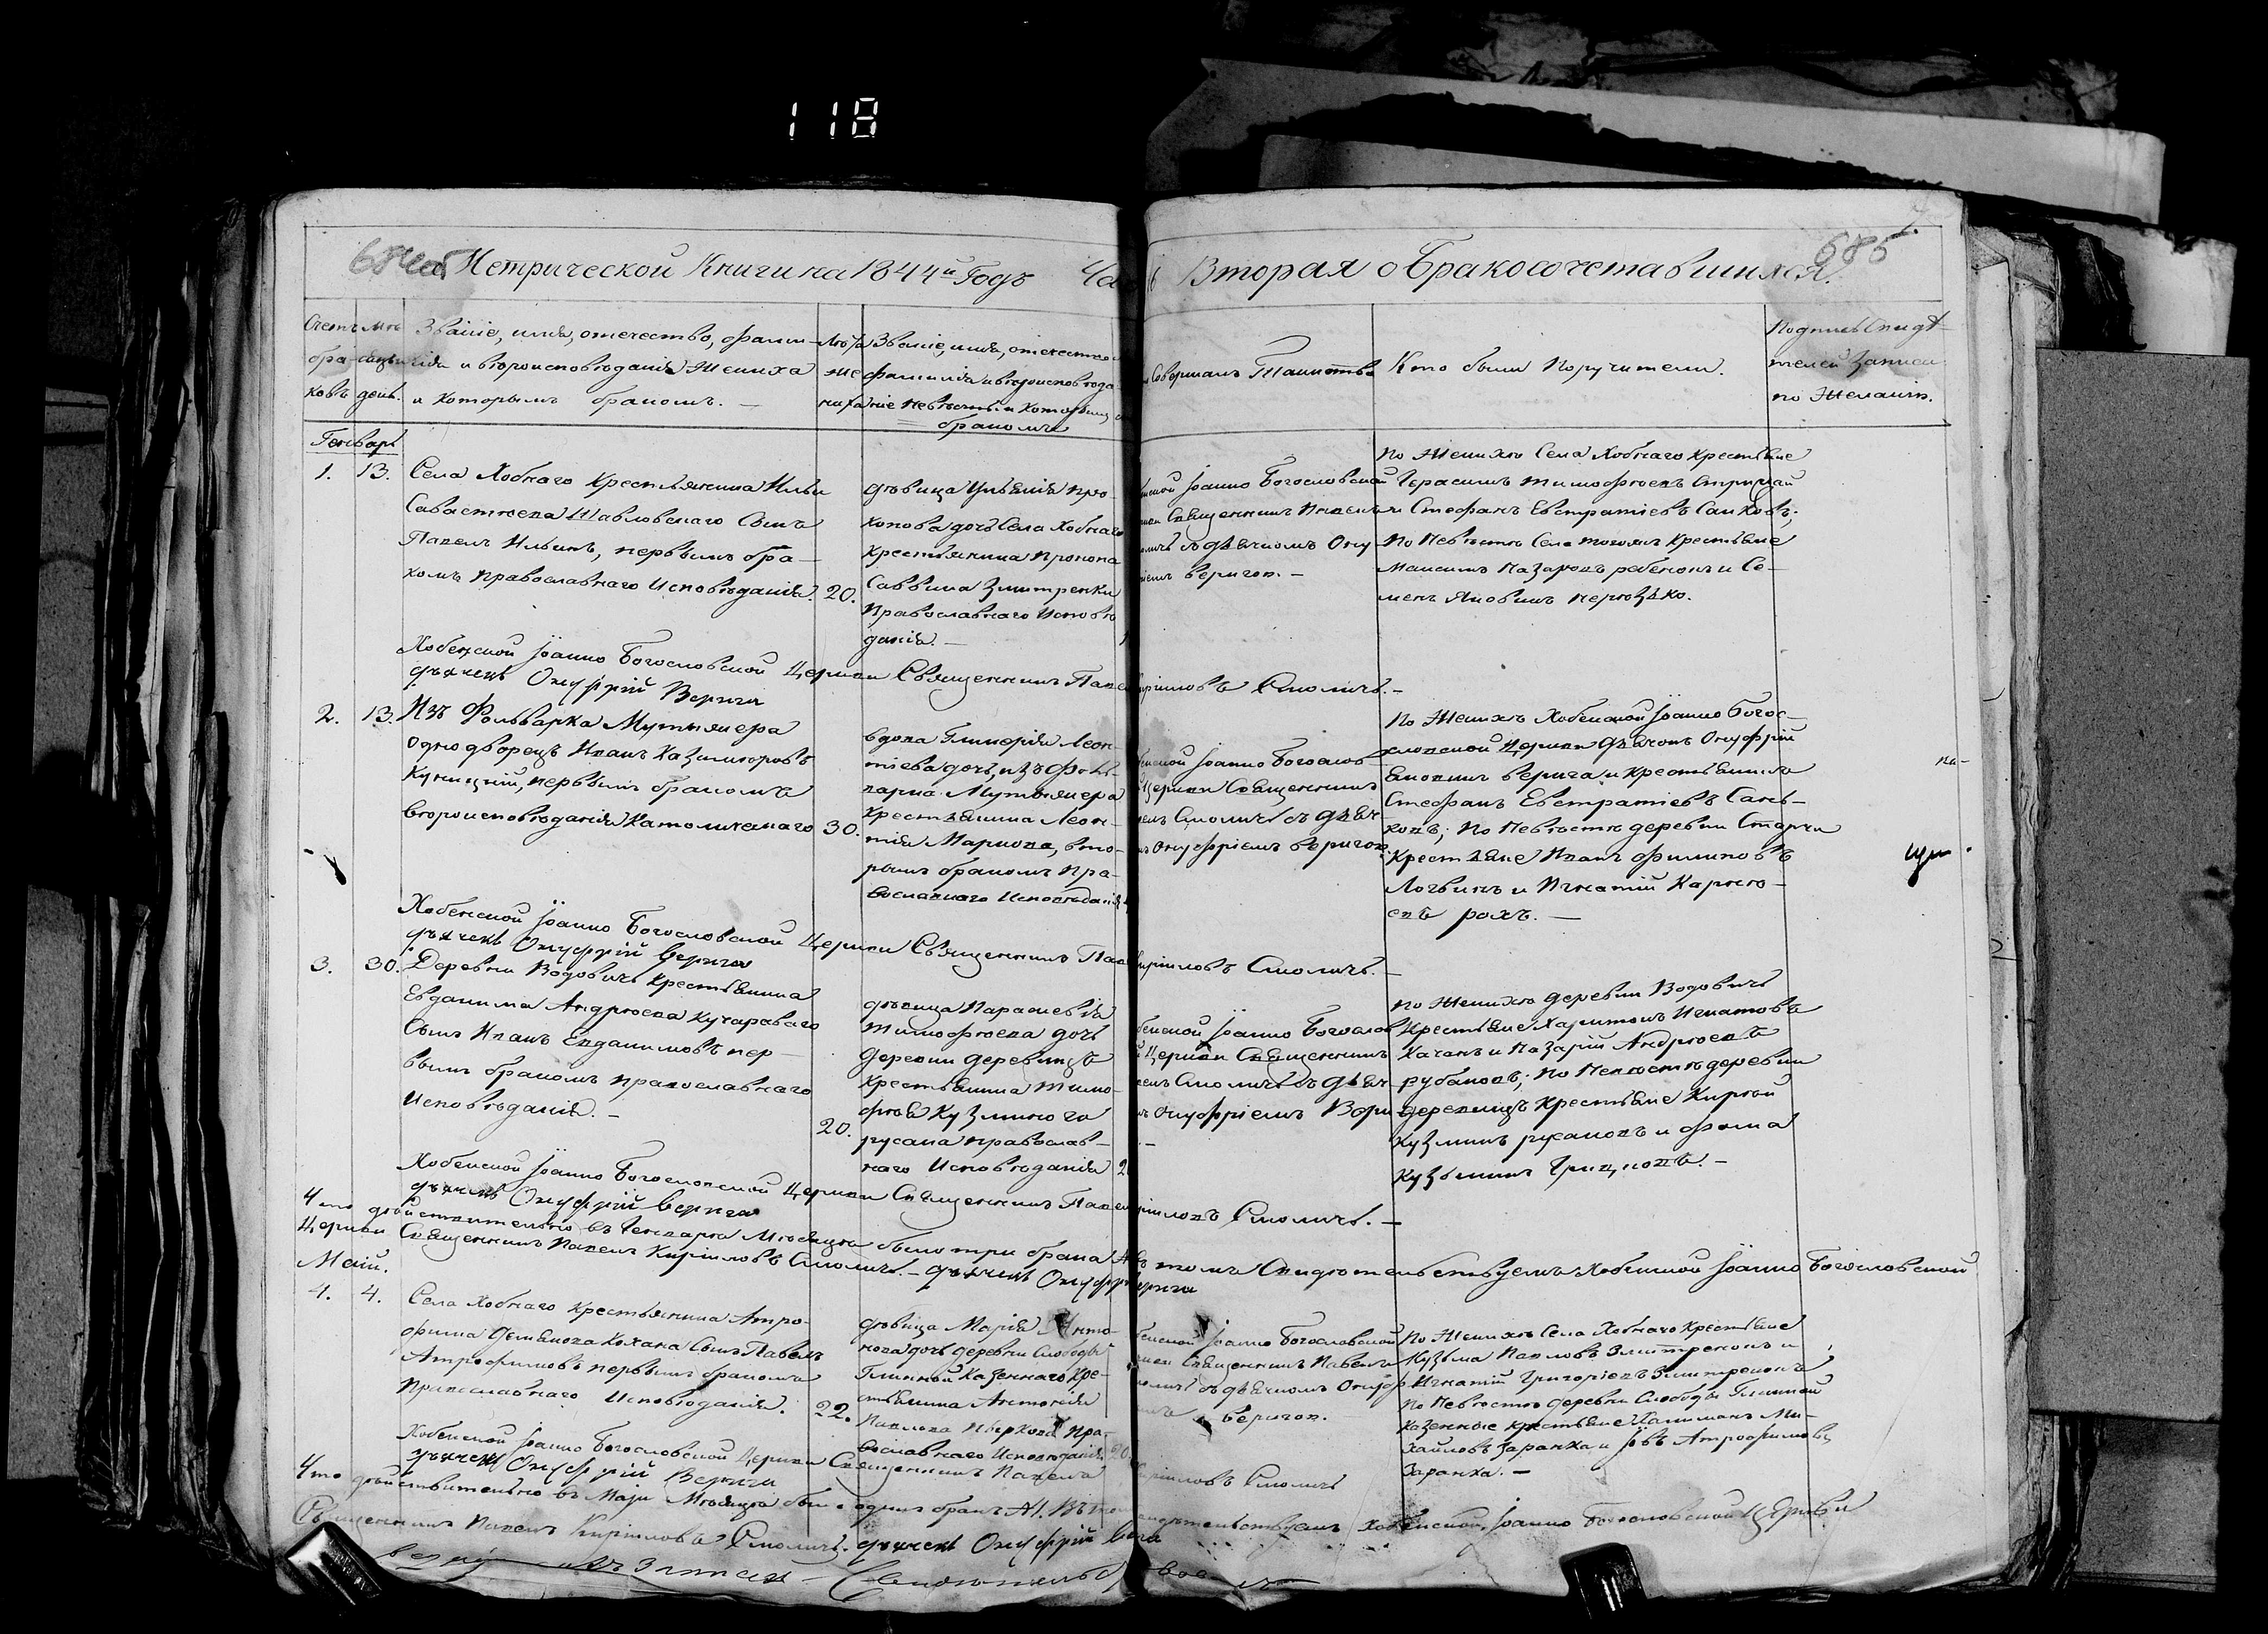 118
684об Метрической Книги на 1844й Годъ Час
Вторая о Бракосочетавшихся.
685
Счетъ бра-ковъ
Мѣ-сяцъ день.
Званіе, имя, отечество, фами-
лія и вѣроисповѣданія Жениха
и Которымъ бракомъ. —
Лѣта же ниха
Званіе, имя, отечество
фамилія и вѣроисповѣда-
ніе Невѣсты и Которымъ
бракомъ
Совершалъ Таинство
Кто были Поручители.
Подпись Свидѣ-
телей Записи
по Желанію.
Генварь
1. 13.
Села Хобнаго Крестьянина Ильи
Савастѣева Шавловскаго Сынъ
Павелъ Ильинъ, первымъ бра-
комъ православнаго Исповѣданія. 20.
дѣвица Ульянія про-
копова дочь Села Хобнаго
Крестьянина прокопа
Саввина Змитренки
Православнаго Исповѣ
данія. —
Іоанно Богословской
Священникъ Павелъ
съ дьячкомъ Ону-
Веригою. —
по Женихѣ Села Хобнаго Крестьяне
Герасимъ Тимофѣевъ
и Стефанъ Евстратіевъ Санковъ;
по Невѣстѣ Села тогожъ Крестьяне
Максимъ Назаровъ ребенокъ и Се-
менъ Яковлевъ
Хобенской Іоанно Богословской Церкви Священникъ Павелъ Кириловъ Смоличъ. —
дьячекъ Онуфрій Верига
2. 13.
Изъ Фольварка Мутыжера
Однодворецъ Иванъ Казимѣровъ
Куницкій, первымъ бракомъ
вѣроисповѣданія Католическаго 30.
вдова Гликерія Леон-
тіева дочь, изъ фоль-
варка Мутыжера
Крестьянина Леон-
тія Маркова, вто-
рымъ бракомъ Пра-
вославнаго Исповѣданія
Іоанно Богослов-
Церкви Священникъ
Смоличъ съ дьяч-
Онуфріемъ Веригою.
По Женихѣ Хобенской Іоанно Богос-
ловской Церкви дьячокъ Онуфрій
Яковлевъ Верига и Крестьянинъ
Стефанъ Евстратіевъ Сань-
ковъ; по Невѣстѣ деревни Старчи
Крестьяне Иванъ Филиповъ
Логвинъ и Игнатій Карнѣ-
евъ рохъ. —
Хобенской Іоанно Богословской Церкви Священникъ Павелъ Кириловъ Смоличъ. —
дьячекъ Онуфрій Верига
3. 30.
Деревни Водовичъ Крестьянина
Евдакима Андрѣева Кучараваго
Сынъ Иванъ Евдакимовъ пер-
вымъ бракомъ православнаго
Исповѣданія. — 20.
дѣвица Параскевія
Тимофѣева дочь
Деревни Деревищъ
Крестьянина Тимо-
фѣя Кузмина го
русана православ-
наго Исповѣданія
Іоанно Богослов
Церкви Священникъ
Смоличъ съ дьяч-
Онуфріемъ Вери
По Женихѣ деревни Водовичъ
Крестьяне Харитонъ Игнатовъ
Качанъ и Назарій Андрѣевъ
рубановъ; по Невѣстѣ деревни
деревищъ Крестьяне Кирѣй
Кузминъ русановъ и Фома
Кузьминъ Грицковъ. —
Хобенской Іоанно Богословской Церкви Священникъ Павелъ Кириловъ Смоличъ. —
дьячекъ Онуфрій Верига
Что дѣйствительно въ Генварѣ Мѣсяцѣ было три брака въ томъ Свидѣтельствуемъ Хобенской Іоанно Богословской
Церкви Священникъ Павелъ Кириловъ Смоличъ. — дьячекъ Онуфрій Верига
Маій.
4. 4.
Села Хобнаго Крестьянина Атро-
фима Демянова Кохана Сынъ Павелъ
Атрофимовъ первымъ бракомъ
Православнаго Исповѣданія. 22.
дѣвица Марія Анто-
нова дочь деревни Слободы
Глинной Казеннаго Кре-
стьянина Антонія
Павлова Пра-
вославнаго Исповѣданія 20
Іоанно Богословской
Священникъ Павелъ
съ дьячкомъ Онуф
Веригою.
По Женихѣ Села Хобнаго Крестьяне
Кузьма Павловъ Змитренокъ и
Игнатій Григоріевъ Змитренокъ
По Невѣстѣ деревни Слободы Глинной
Казенные Крестьяне Калиманъ Ми-
хайловъ Заранка и Іовъ Атрофимовъ
Заранка. —
Хобенской Іоанно Богословской Церкви Священникъ Павелъ Кириловъ Смоличъ
дьячекъ Онуфрій Верига
Что дѣйствительно въ Маіи Мѣсяцѣ былъ одинъ бракъ №1. Въ томъ Свидѣтельствуемъ Хобенской Іоанно Богословской Церкви
Священникъ Павелъ Кириловъ Смоличъ. дьячекъ Онуфрій Верига